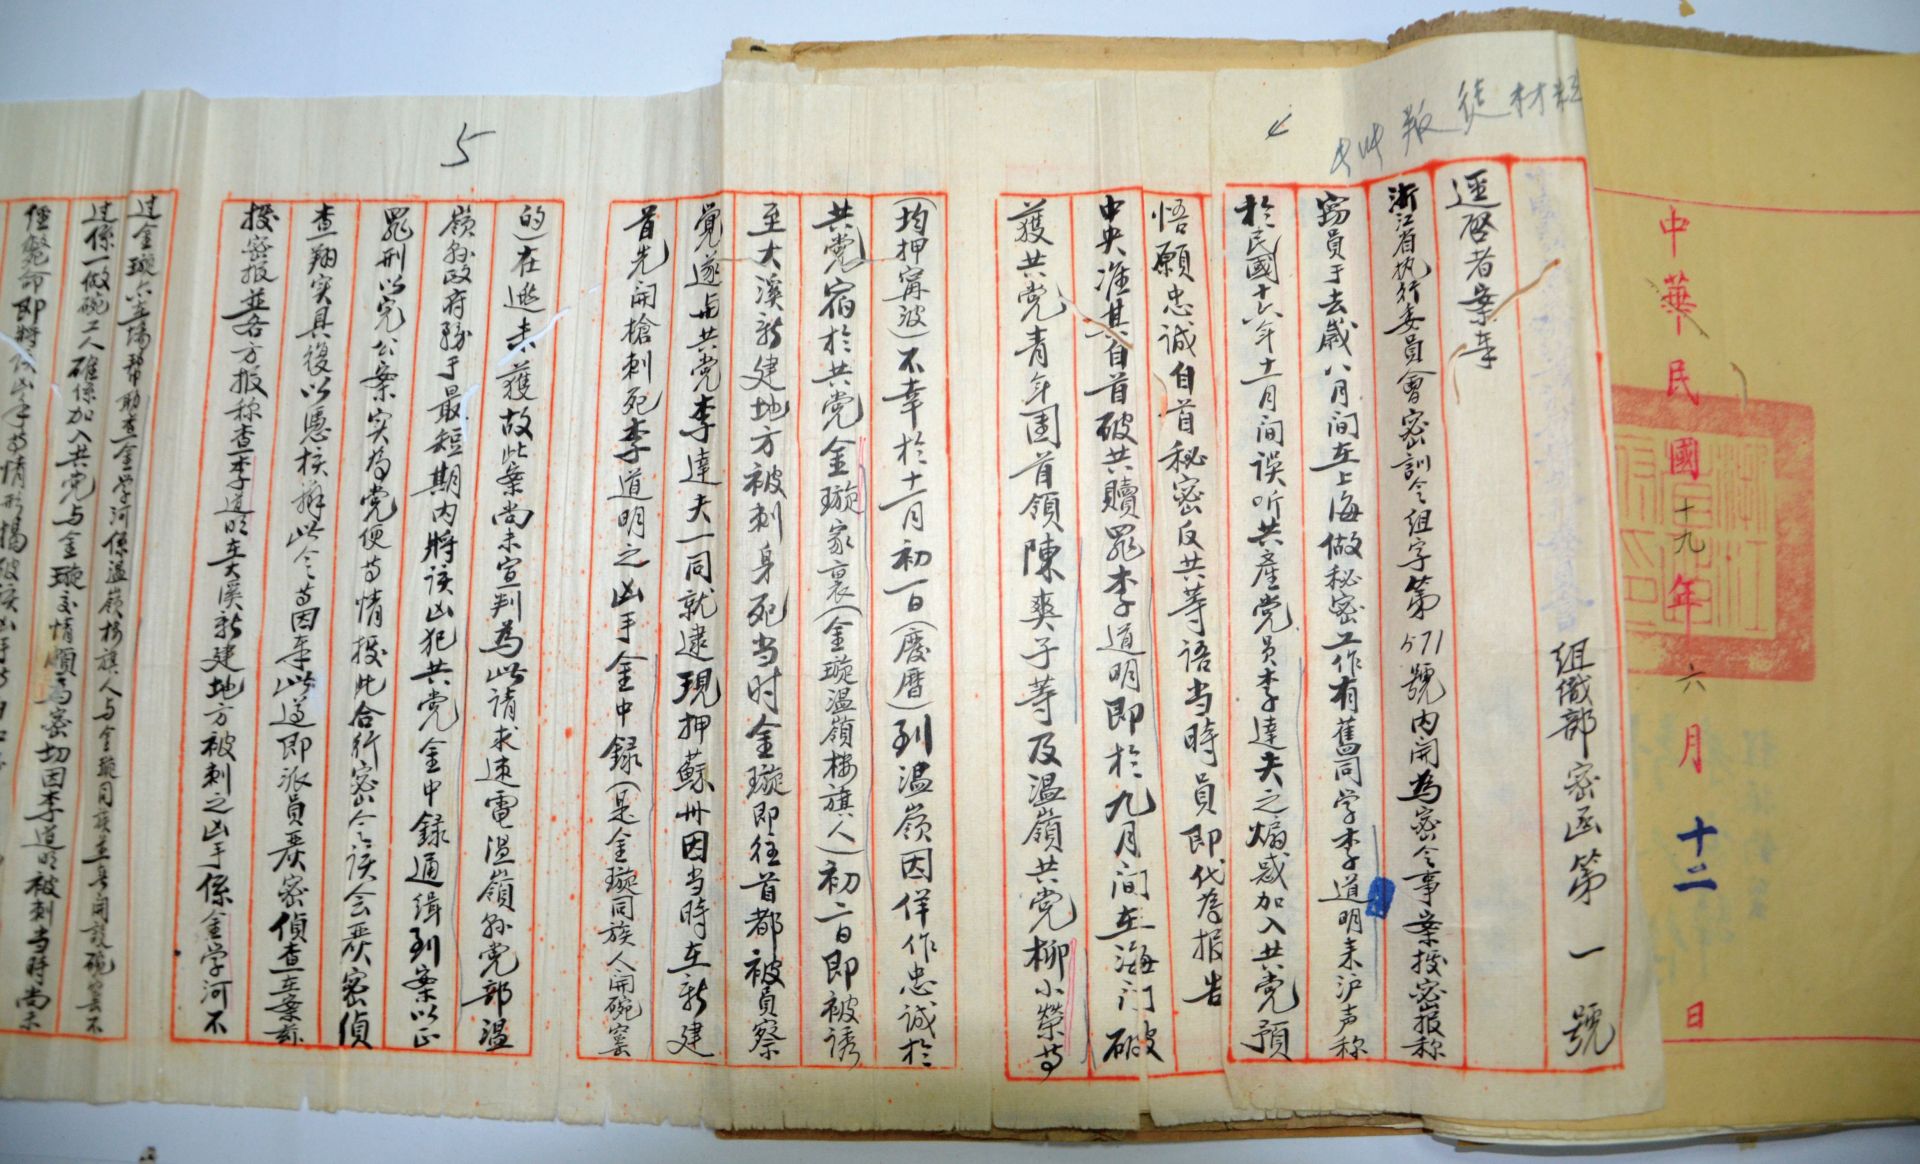 中華民國十九年六月十二日
叛徒材料
4
組織部密函第一號
逕啓者案奉
浙江省执行委員會密訓令組字第571號内開為密令事案按密报称
窃員于去歲八月间在上海做秘密工作有舊同学李道明来沪声称
於民國十六年十一月间误听共產党員李達夫之煽惑加入共党預
悟願忠诚自首秘密反共等語当時員即代為报告
中央准其自首破共贖罪李道明即於九月间在海门破
獲共党青年团首領陳爽子等及温嶺共党柳小榮等
(均押甯波)不幸於十一月初一日(廢曆)到温嶺因佯作忠诚於
共党宿於共党金璇家裏(金璇温嶺楼旗人)初二日即被诱
至大溪新建地方被刺身死当时金璇即往首都被員察
覺遂与共党李達夫一同就逮現押蘇州因当時在新建
首先開槍刺死李道明之凶手金中録(是金璇同族人開碗窑
5
的)在逃未獲故此案尚未宣判為此請求速電温嶺縣党部温
嶺縣政府務于最短期内將该凶犯共党金中録通缉到案以正
罪刑以完公案实為党便等情按此合行密令该会严密偵
查翔实具復以憑核辦此令等因奉此遵即派員严密偵查在案兹
按密报並各方报称查李道明在大溪新建地方被刺之凶手係金学河不
过金璇亦在場幫助查金学河係温嶺楼旗人与金璇同族並專開設碗窑不
过係一做碗工人確係加入共党与金璇交情頗為密切因李道明被刺当時尚未